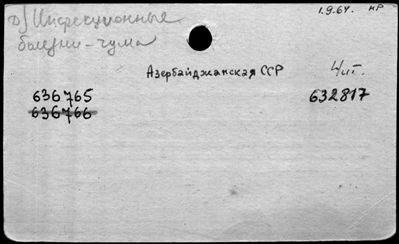 д) Инфекционные 1.9.64. нр
болезни - чума
Азербайджанская ССР Чит.
636765 632817
636766